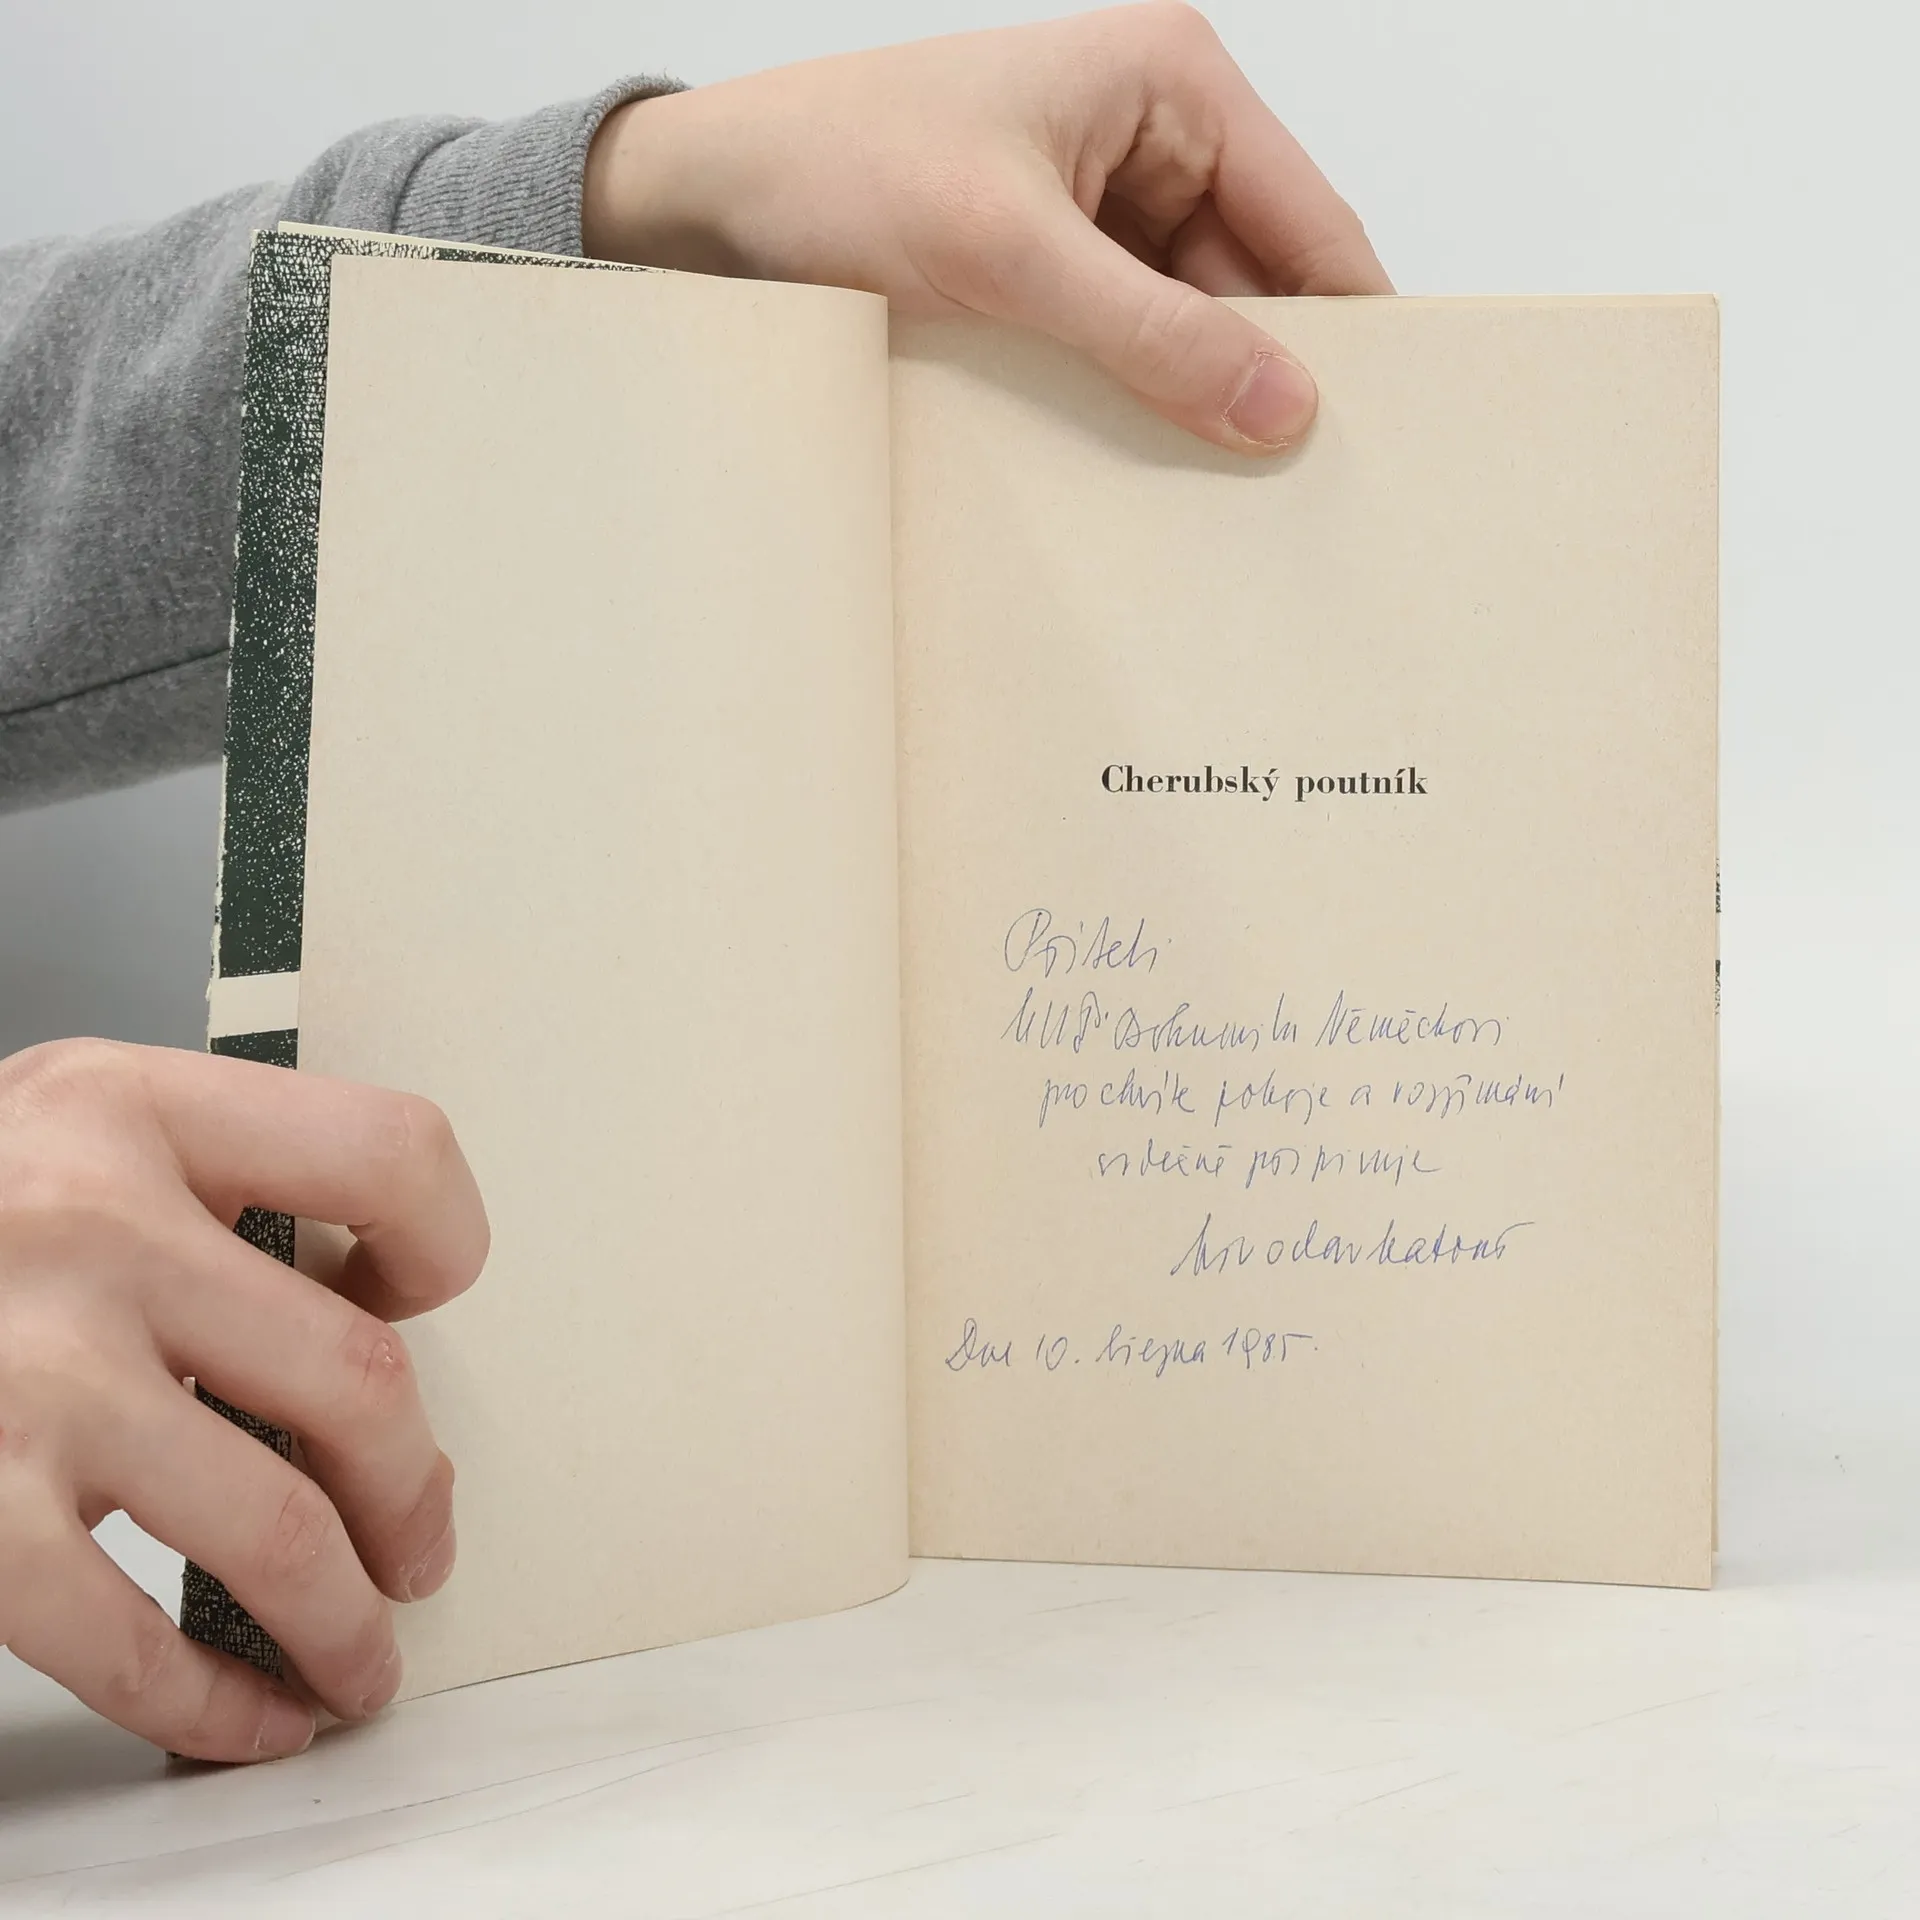 Cherubský poutník
Příteli
MUDr Bohumilu Němečkovi
pro chvíle pokoje a rozjímání
srdečně připisuje
Miroslav Matouš
Dne 10. března 1985.